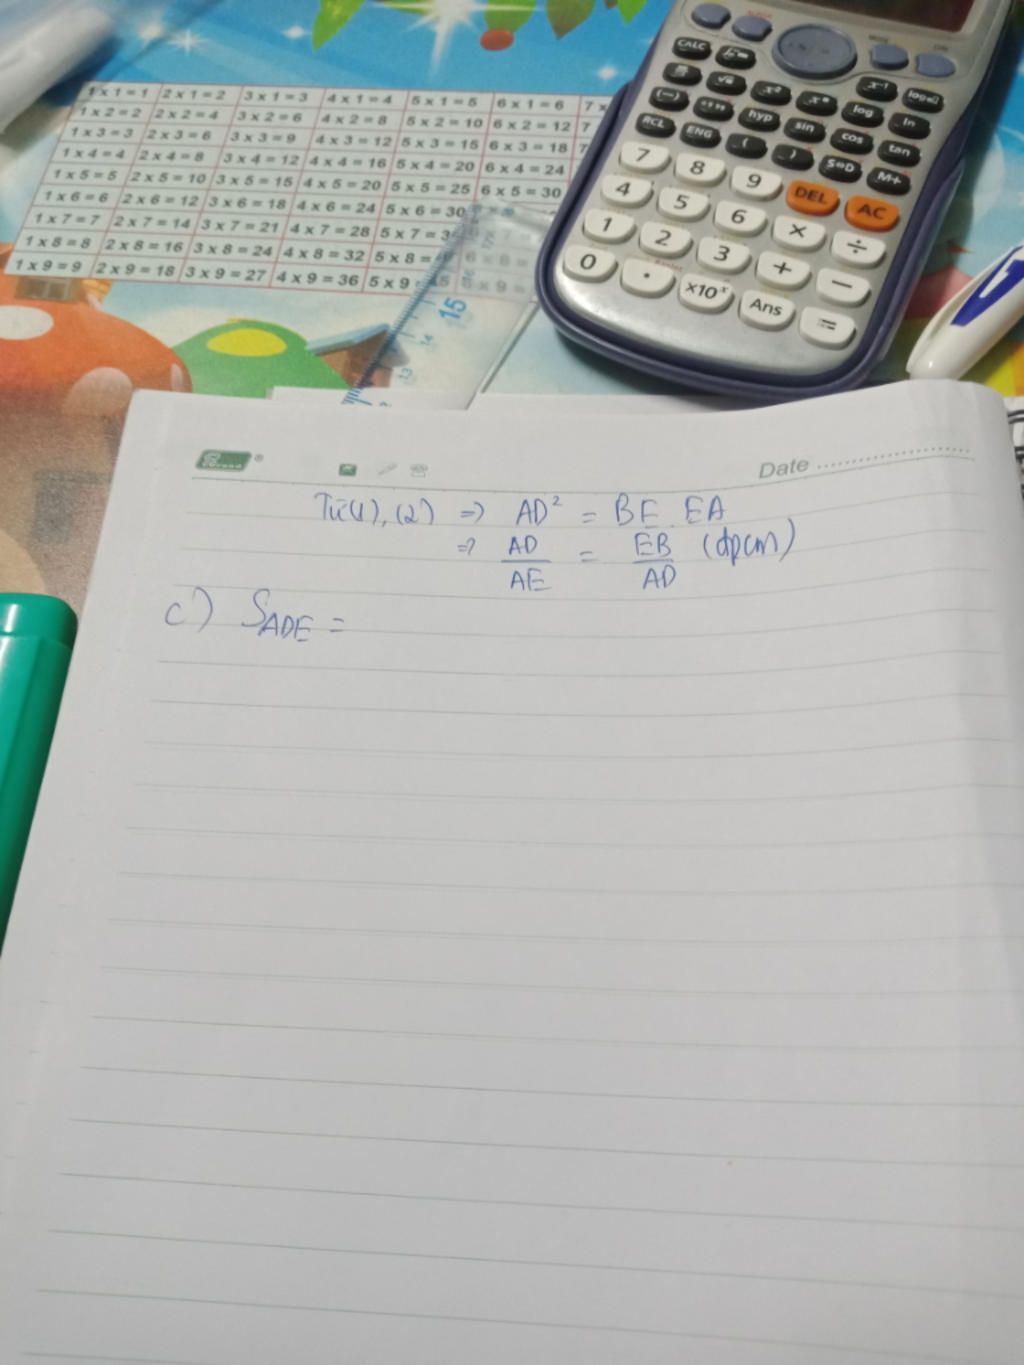 1 x 1 = 1 2 x 1 = 2 3 x 1 = 3 4 x 1 = 4 5 x 1 = 5 6 x 1 = 6 7 x
1 x 2 = 2 2 x 2 = 4 3 x 2 = 6 4 x 2 = 8 5 x 2 = 10 6 x 2 = 12 7
1 x 3 = 3 2 x 3 = 6 3 x 3 = 9 4 x 3 = 12 5 x 3 = 15 6 x 3 = 18 7
1 x 4 = 4 2 x 4 = 8 3 x 4 = 12 4 x 4 = 16 5 x 4 = 20 6 x 4 = 24
1 x 5 = 5 2 x 5 = 10 3 x 5 = 15 4 x 5 = 20 5 x 5 = 25 6 x 5 = 30
1 x 6 = 6 2 x 6 = 12 3 x 6 = 18 4 x 6 = 24 5 x 6 = 30
1 x 7 = 7 2 x 7 = 14 3 x 7 = 21 4 x 7 = 28 5 x 7 = 3
1 x 8 = 8 2 x 8 = 16 3 x 8 = 24 4 x 8 = 32 5 x 8 = 6 x 8 =
1 x 9 = 9 2 x 9 = 18 3 x 9 = 27 4 x 9 = 36 5 x 9 6 x 9 =
15
14
13
CALC
x² x^-1
(-) hyp sin log ln
RCL ENG ( ) cos tan
S⇔D M+
7 8 9 DEL AC
4 5 6 × ÷
1 2 3 + −
0 . ×10ˣ Ans =
Date
Từ (1), (2) => AD² = BE . EA
=> AD/AE = EB/AD (đpcm)
c) S_ADE =